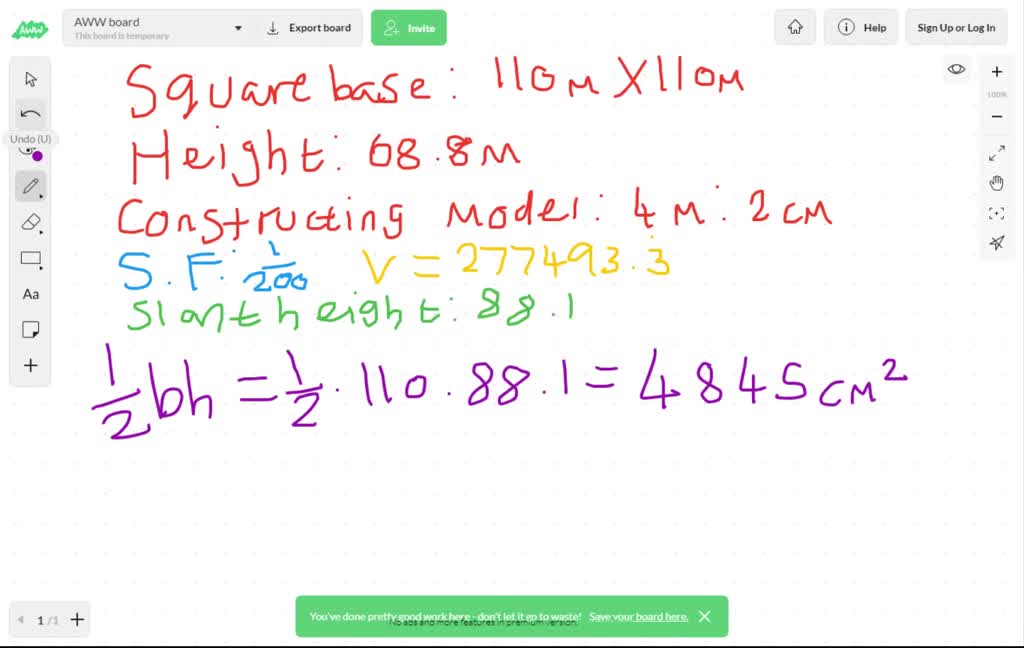 AWW board
This board is temporary
Export board
Invite
Help
Sign Up or Log In
AWW
100%
Undo (U)
Aa
Square base: 110m X 110m
Height: 68.8m
Constructing model: 4m: 2cm
S.F: 1/200 V = 277493.3̇
Slant height: 88.1
1/2 bh = 1/2 . 110 . 88.1 = 4845cm²
1 /1
You've done pretty good work here - don't let it go to waste! Save your board here.
No ads and more features in premium version.